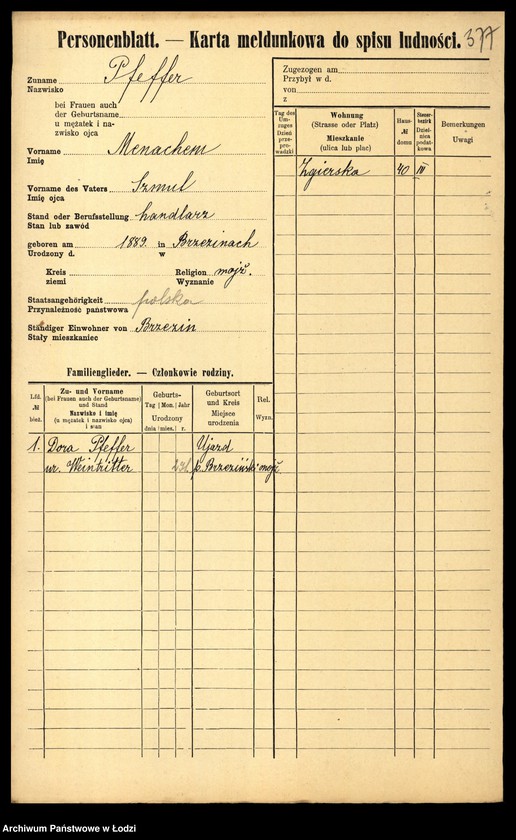 Personenblatt. — Karta meldunkowa do spisu ludności. 377
Zuname Pfeffer
Nazwisko
bei Frauen auch
der Geburtsname
u mężatek i na-
zwisko ojca
Vorname Menachem
Imię
Vorname des Vaters Szmul
Imię ojca
Stand oder Berufsstellung handlarz
Stan lub zawód
geboren am 1889. in Brzezinach
Urodzony d. w
Kreis Religion mojż.
ziemi Wyznanie
Staatsangehörigkeit polska
Przynależność państwowa
Ständiger Einwohner von Brzezin
Stały mieszkaniec
Familienglieder. — Członkowie rodziny.
Lfd. № bież.
Zu- und Vorname
(bei Frauen auch der Geburtsname)
und Stand
Nazwisko i imię
(u mężatek i nazwisko ojca)
i stan
Geburts-
Tag Mon. Jahr
Urodzony
dnia mies. r.
Geburtsort
und Kreis
Miejsce
urodzenia
Rel.
Wyzn.
1. Dora Pfeffer Ujazd
ur. Weintritter p. Brzeziński mojż.
Zugezogen am
Przybył w d.
von
z
Tag des
Um-
zuges
Dzień
prze-
prowadzki
Wohnung
(Strasse oder Platz)
Mieszkanie
(ulica lub plac)
Haus-
№
domu
Steuer-
bezirk
Dzielni-
ca podat-
kowa
Bemerkungen
Uwagi
Zgierska 40 III
Archiwum Państwowe w Łodzi